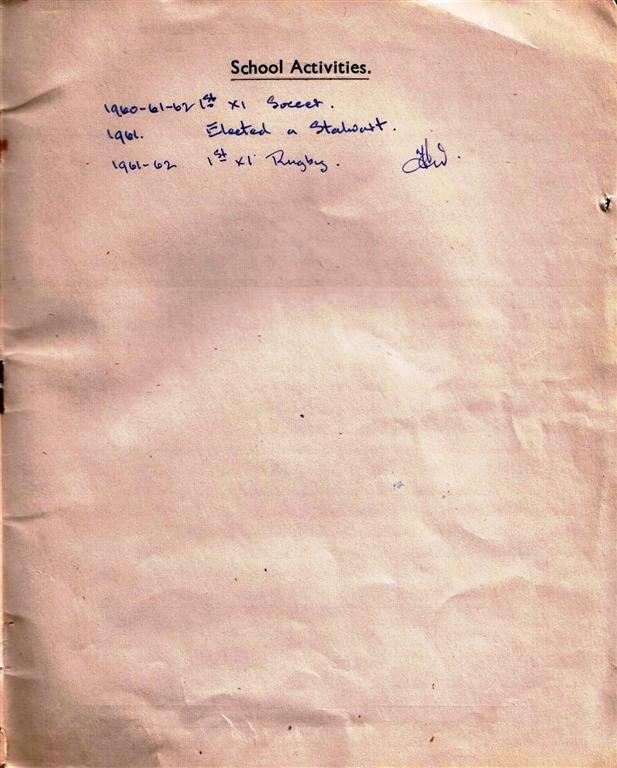 School Activities.
1960-61-62 1st XI Soccer.
1961. Elected a Stalwart.
1961-62 1st XI Rugby.